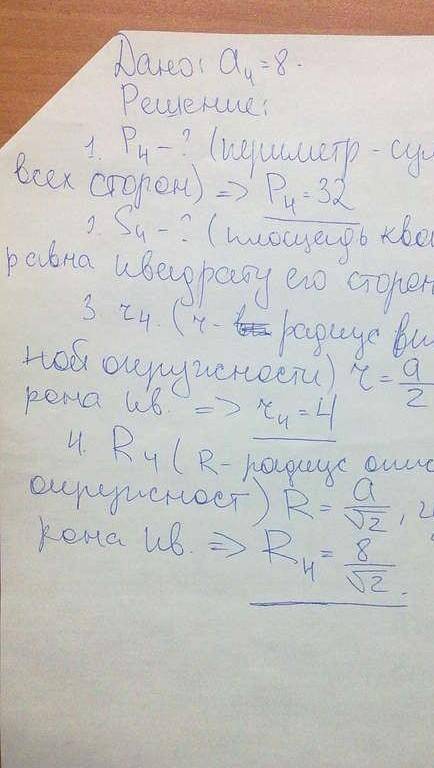 Дано: a₄=8.
Решение:
1. P₄-? (периметр - сум
всех сторон) => P₄=32
2. S₄-? (площадь квад
равна квадрату его сторон
3. r₄. (r- радиус впи
ной окружности) r=a/2
рона кв. => r₄=4
4. R₄ (R-радиус опис
окружност) R=a/√2, г
рона кв. => R₄=8/√2.